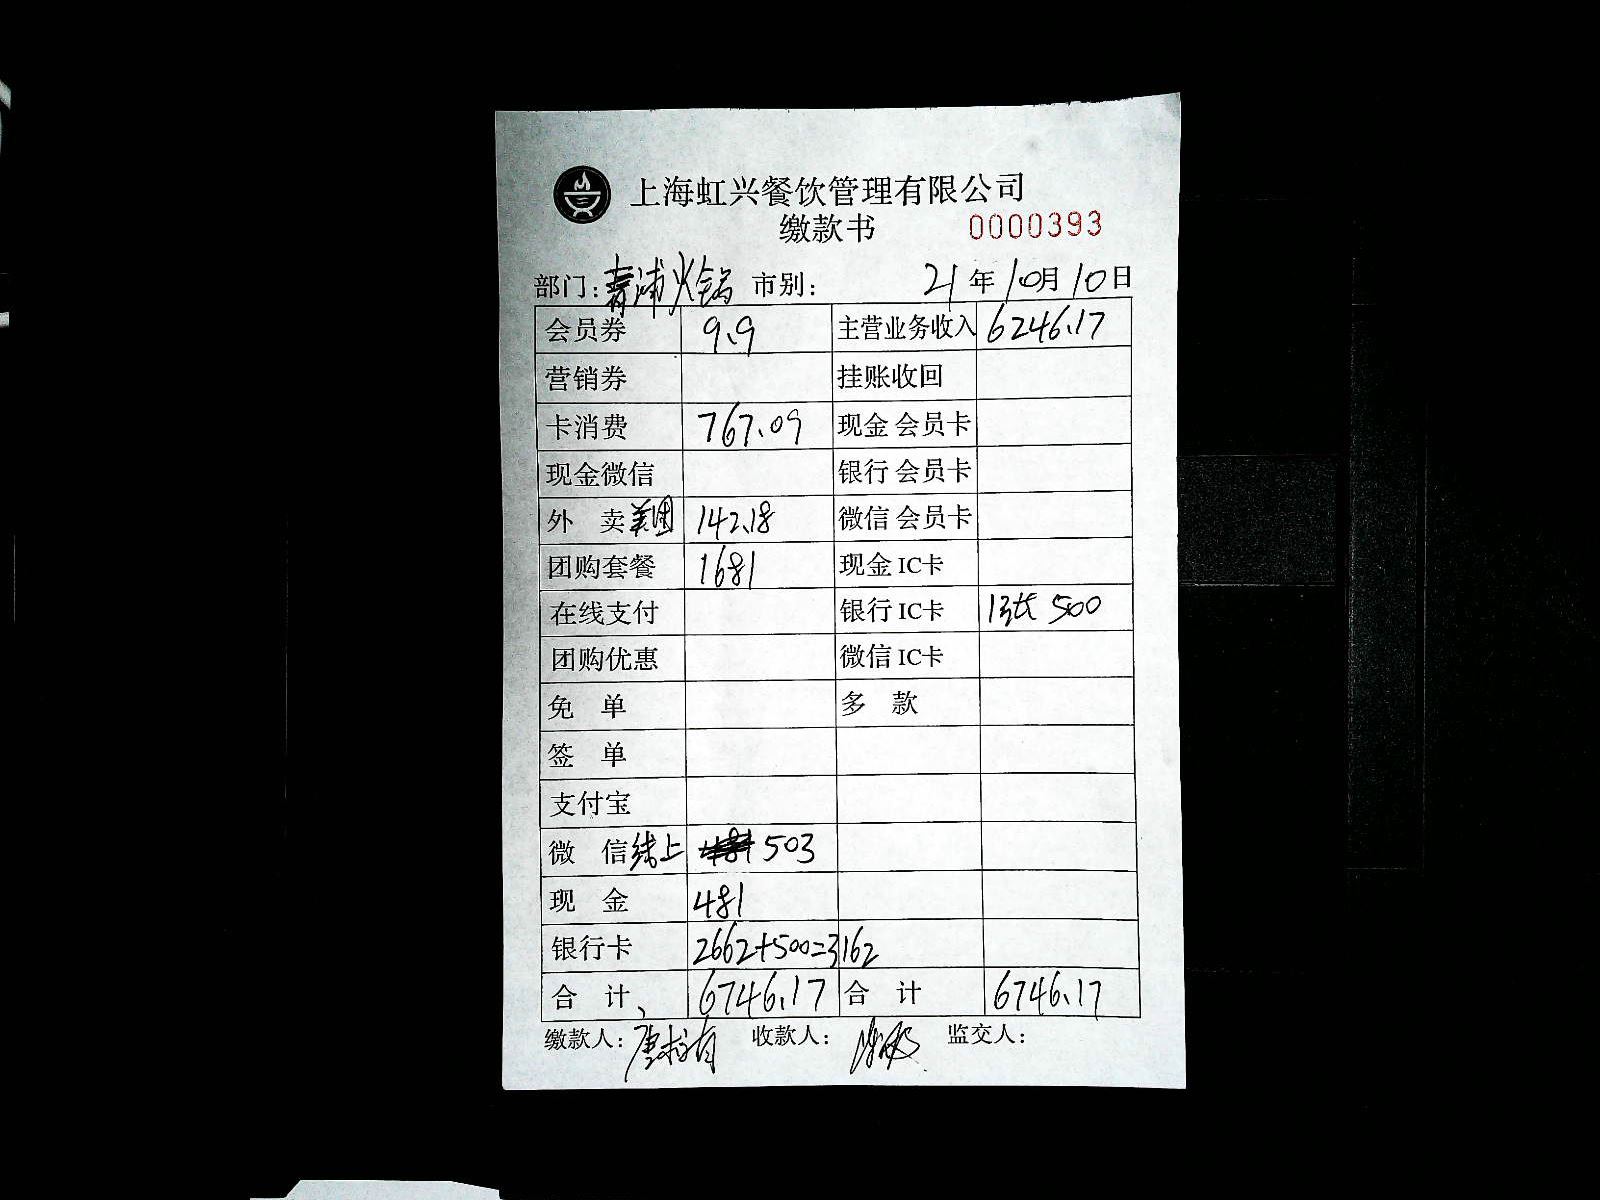 上海虹兴餐饮管理有限公司
缴款书 0000393
部门:青浦火锅 市别: 21年10月10日
会员券 9.9 主营业务收入 6246.17
营销券 挂账收回
卡消费 767.09 现金会员卡
现金微信 银行会员卡
外卖美团 142.18 微信会员卡
团购套餐 1681 现金IC卡
在线支付 银行IC卡 1张 500
团购优惠 微信IC卡
免单 多款
签单
支付宝
微信线上 503
现金 481
银行卡 2662+500=3162
合计、 6746.17 合计 6746.17
缴款人: 收款人: 监交人: